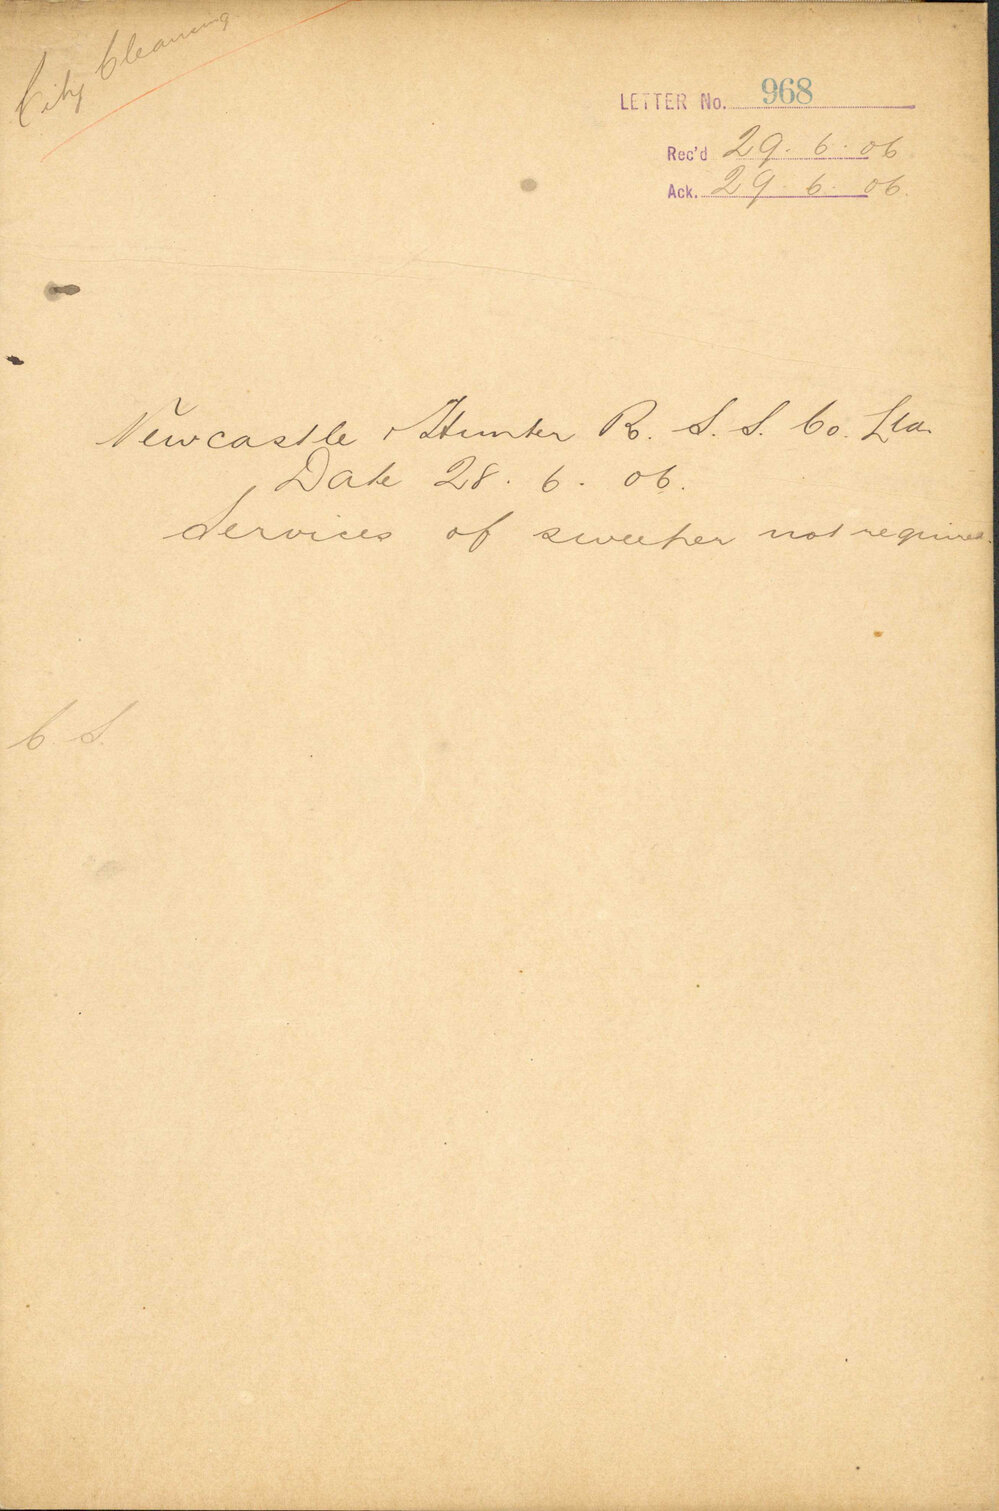 City Cleaning
LETTER No. 968
Rec'd 29. 6. 06
Ack. 29. 6. 06.
Newcastle & Hunter R. S. S. Co. Ltd.
Date 28. 6. 06.
Services of sweeper not required.
C. S.